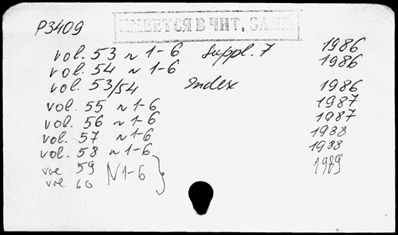 P3409
ИМЕЕТСЯ В ЧИТ. ЗАЛЕ
vol. 53 N 1-6 Suppl. 7 1986
vol. 54 N 1-6 1986
vol. 53/54 Index 1986
vol. 55 N 1-6 1987
vol. 56 N 1-6 1987
vol. 57 N 1-6 1988
vol. 58 N 1-6 1988
vol 59 N1-6 1989
vol 60